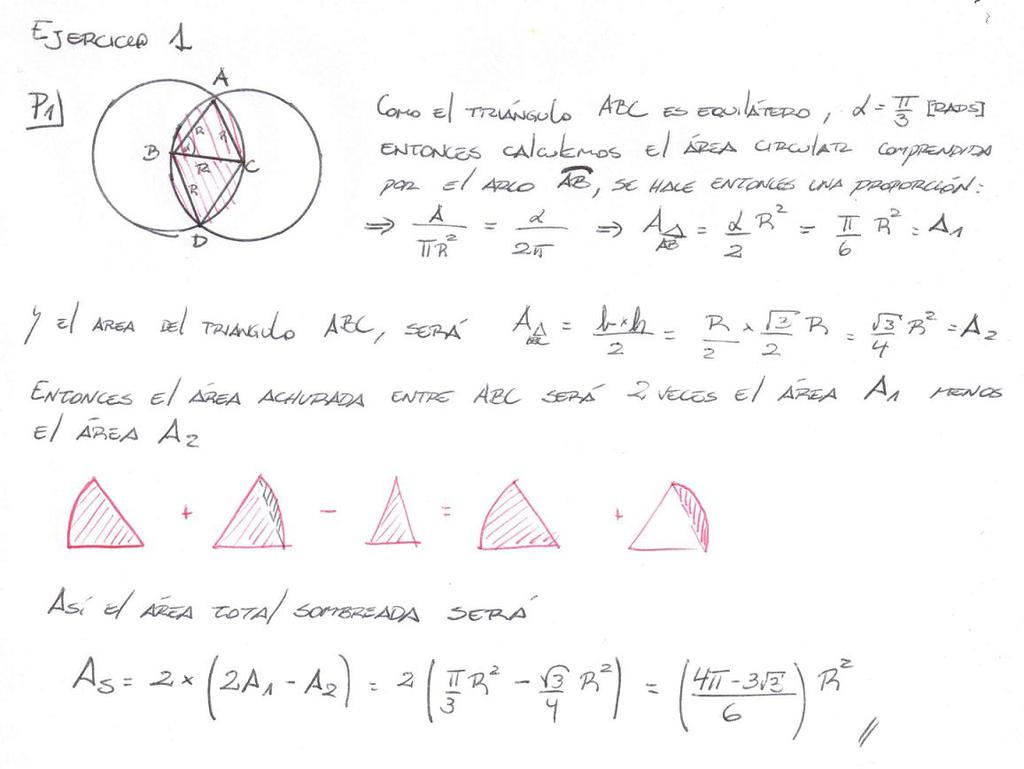 EJERCICIO 1
P1]
A
B
C
D
R
R
R
R
α
COMO EL TRIÁNGULO ABC ES EQUILÁTERO, α = π/3 [RADS]
ENTONCES CALCULEMOS EL ÁREA CIRCULAR COMPRENDIDA
POR EL ARCO AB, SE HACE ENTONCES UNA PROPORCIÓN:
⇒ A/πR² = α/2π ⇒ A△AB = α/2 R² = π/6 R² = A1
Y EL AREA DEL TRIANGULO ABC, SERÁ A△ABC = b×h/2 = R/2 × √3/2 R = √3/4 R² = A2
ENTONCES EL ÁREA ACHURADA ENTRE ABC SERÁ 2 VECES EL ÁREA A1 MENOS
EL ÁREA A2
+ - = +
ASÍ EL ÁREA TOTAL SOMBREADA SERÁ
AS = 2 × (2A1 - A2) = 2 (π/3 R² - √3/4 R²) = (4π - 3√3 / 6) R² //